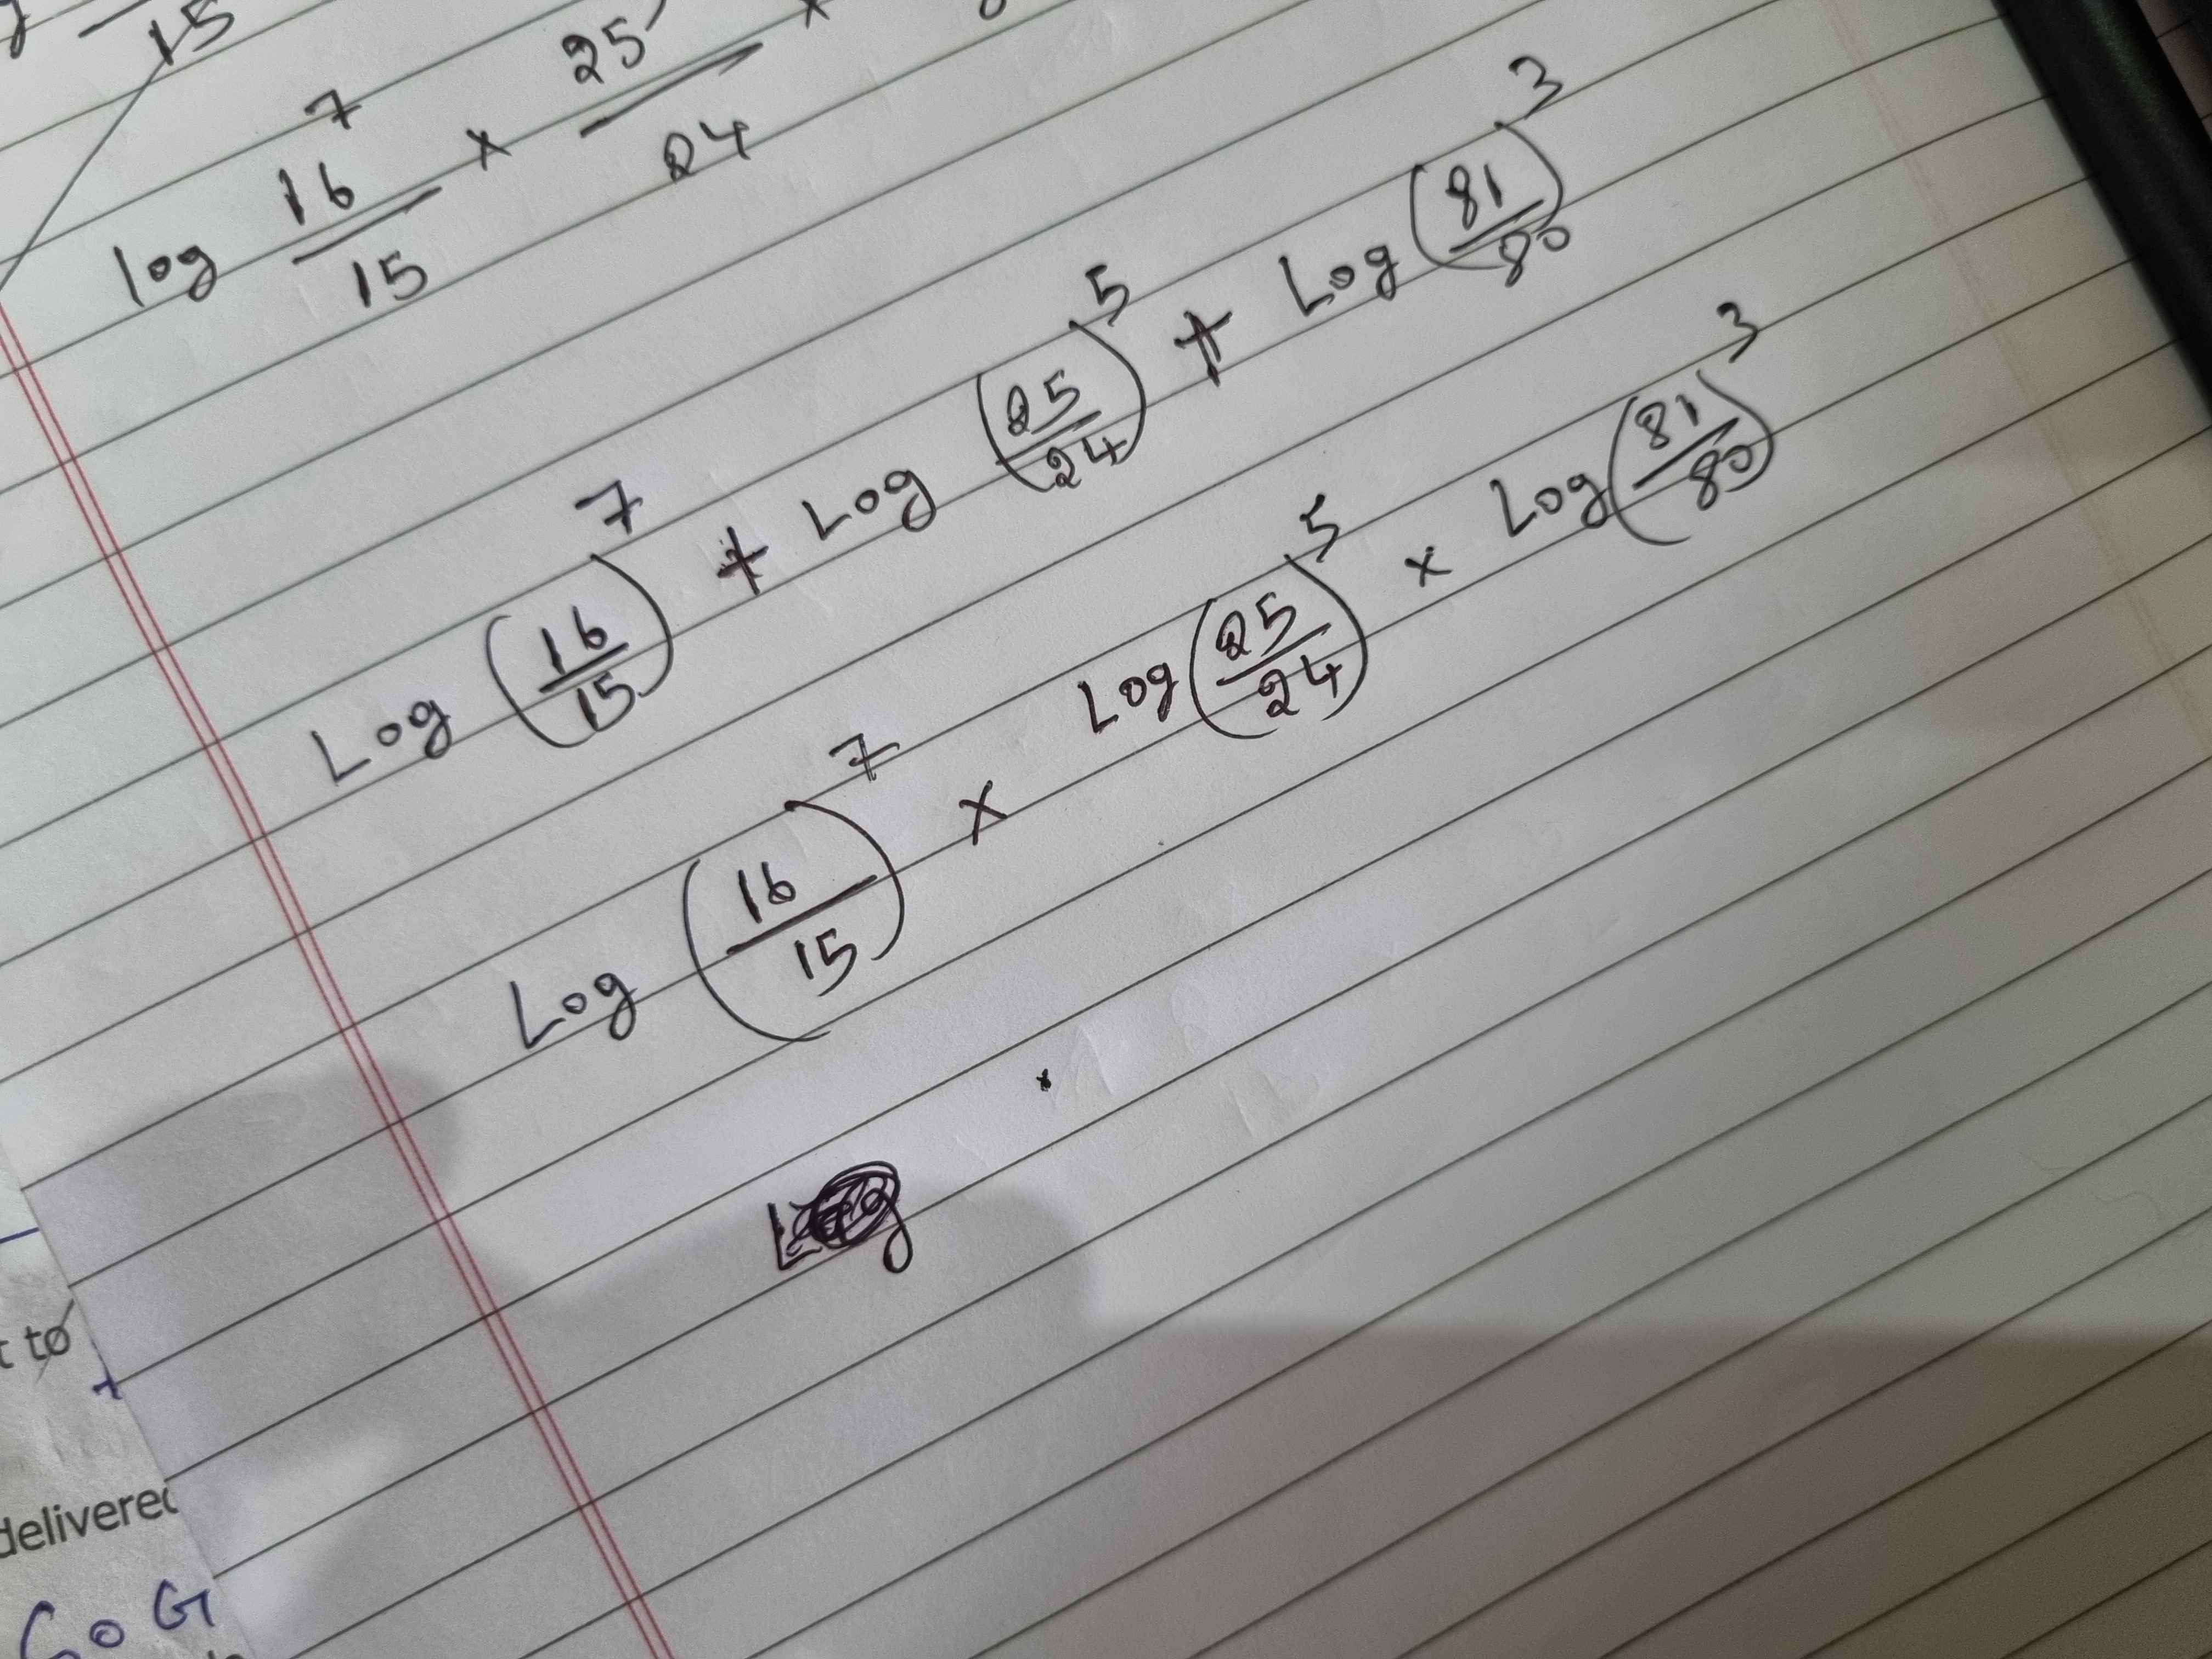 15
log 16/15 7 × 25/24 ×
Log (16/15)^7 + Log (25/24)^5 + Log (81/80)^3
Log (16/15)^7 × Log (25/24)^5 × Log (81/80)^3
to
delivered